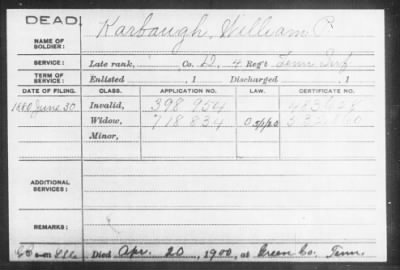 DEAD
NAME OF SOLDIER: Karbaugh, William P.
SERVICE: Late rank, Co. D, 4 Reg't Tenn Inf
TERM OF SERVICE: Enlisted , 1 Discharged , 1
DATE OF FILING. CLASS. APPLICATION NO. LAW. CERTIFICATE NO.
1880 June 30 Invalid, 398 954 483628
Widow, 718 834
Minor,
ADDITIONAL SERVICES:
REMARKS:
Died Apr. 20, 1900, at Green Co. Tenn.